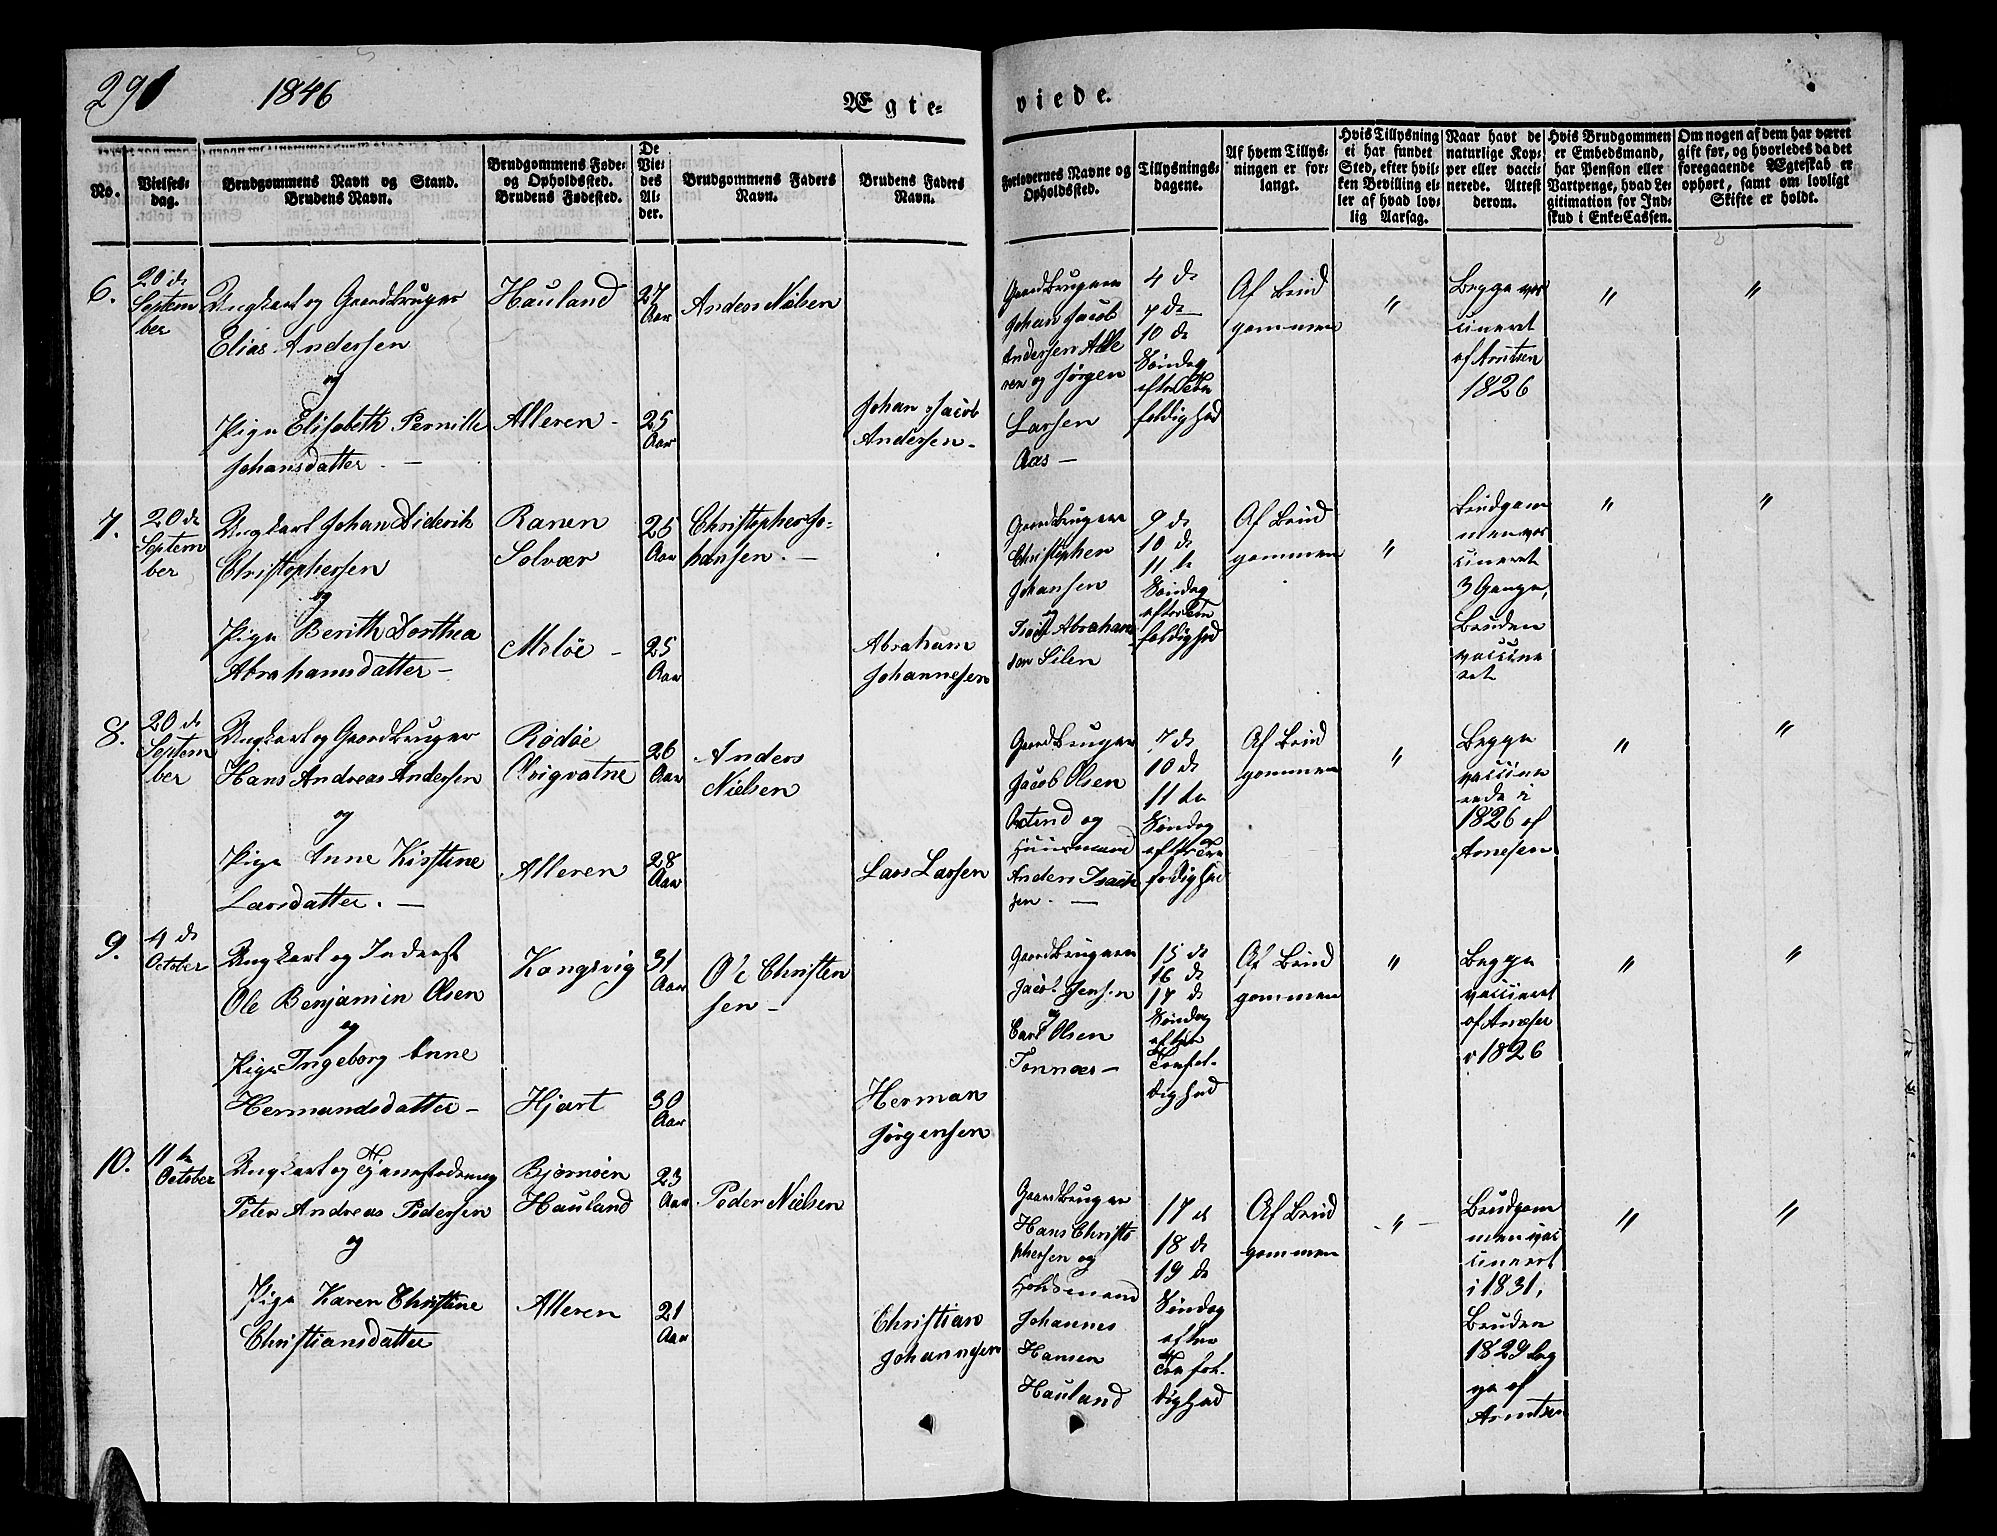 291
1846
Ægte-
viede.
No.
Vielses-
dag.
Brudgommens Navn og Stand.
Brudens Navn.
Brudgommens Føde-
og Opholdssted.
Brudens Fødested.
De
Vie-
des
Al-
der.
Brudgommens Faders
Navn.
Brudens Faders
Navn.
Forlovernes Navne og
Opholdssted.
Tillysnings-
dagene.
Af hvem Tillys-
ningen er for-
langt.
Hvis Tillysning
ei har fundet
Sted, efter hvil-
ken Bevilling el-
ler af hvad lov-
lig Aarsag.
Naar havt de
naturlige Kop-
per eller vacci-
nerede. Attest
derom.
Hvis Brudgommen
er Embedsmand,
har Pension eller
Vartpenge, hvad Le-
gitimation for Ind-
skud i Enke-Cassen.
Om nogen af dem har været
gift før, og hvorledes da det
foregaaende Ægteskab er
ophørt, samt om lovligt
Skifte er holdt.
6.
20 de
Septem
ber
Ungkarl og Gaardbruger
Elias Andersen
og
Pige Elisabeth Pernille
Johansdatter. —
Hauland
Alleren -
27
Aar
25
Aar
Anders Nielsen
Johan Jacob
Andersen -
Gaardbrugerne
Johan Jacob
Andersen Alle
ren og Jørgen
Larsen
Aas —
4 de
7 de
10 de
Søndag
efter Tre
foldighed
Af Brud
gommen
"
Begge vac
cineret
af Arntsen
1826
"
"
7.
20 de
Septem
ber
Ungkarl Johan Diderik
Christophersen
og
Pige Berith Dorthea
Abrahamsdatter —
Ranen
Solvær
Moløe -
25
Aar
25
Aar
Christopher Jo-
hansen. —
Abraham
Johannesen
Gaardbrugerne
Christopher
Johansen
og
Abraham
sen Silen
9 de
10 de
11 te
Søndag
efter Tre
foldighed
Af Brud
gommen
"
Brudgom
men vac
cineret
3 Gange,
Bruden
vaccine
ret
"
"
8.
20 de
Septem
ber
Ungkarl og Gaardbruger
Hans Andreas Andersen
og
Pige Anne Kirstine
Larsdatter. —
Rødøe
Qvigvatne
Alleren
26
Aar
28
Aar
Anders
Nielsen
Lars Larsen
Gaardbruger
Jacob Olsen
og
Huusmand
Anders Isach
sen. —
7 de
10 de
11 te
Søndag
efter Tre
foldighed
Af Brud
gommen
"
Begge
vaccine
rede i
1826 af
Arnesen
"
"
9.
4 de
October
Ungkarl og Inderst
Ole Benjamin Olsen
og
Pige Ingeborg Anne
Hermandsdatter —
Kongsvig
Hjart
31
Aar
30
Aar
Ole Christen
sen —
Herman
Jørgensen
Gaardbrugerne
Jacob Jensen
og
Olsen
Tonnæs —
15 de
16 de
17 de
Søndag
efter
Trefol-
dighed
Af Brud
gommen
"
Begge
vaccineret
af
1826
"
"
10.
11 te
October
Ungkarl og
Peter Andreas Pedersen
og
Pige Karen Christine
Christiansdatter
Bjørnøen
Hauland
Alleren
23
Aar
21
Aar
Peder Nielsen
Christian
Johannesen
Gaardbruger
Hans Christo
phersen og
Johannes
Hansen
Hauland
17 de
18 de
19 de
Søndag
efter
Trefol-
dighed
Af Brud
gommen
"
Brudgom
men vac
cineret
i 1831,
Bruden
1829 beg
ge af
Arntsen
"
"